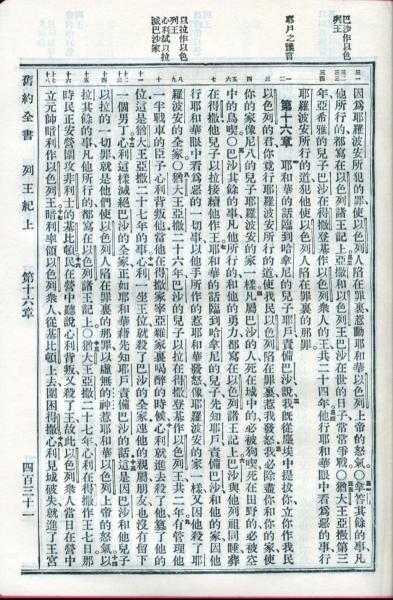 巴沙作以色
列王
耶戶之豫言
以拉作以色
列王
心利弒以拉
滅巴沙家
因爲耶羅波安所犯的罪使以色列人陷在罪裏惹動耶和華以色列上帝的怒氣○拿答其餘的事凡
他所行的都寫在以色列諸王記上亞撒和以色列王巴沙在世的日子常常爭戰○猶大王亞撒第三
年亞希雅的兒子巴沙在得撒登基作以色列眾人的王共二十四年他行耶和華眼中看爲惡的事行
耶羅波安所行的道犯他使以色列人陷在罪裏的那罪
第十六章 耶和華的話臨到哈拿尼的兒子耶戶責備巴沙說我旣從塵埃中提拔你立你作我民
以色列的君你竟行耶羅波安所行的道使我民以色列陷在罪裏惹我發怒我必除盡你和你的家使
你的家像尼八的兒子耶羅波安的家一樣凡屬巴沙的人死在城中的必被狗喫死在田野的必被空
中的鳥喫○巴沙其餘的事凡他所行的和他的勇力都寫在以色列諸王記上巴沙與他列祖同睡葬
在得撒他兒子以拉接續他作王耶和華的話臨到哈拿尼的兒子先知耶戶責備巴沙和他的家因他
行耶和華眼中看爲惡的一切事以他手所作的惹耶和華發怒像耶羅波安的家一樣又因他殺了耶
羅波安的全家○猶大王亞撒二十六年巴沙的兒子以拉在得撒登基作以色列王共二年有管理他
一半戰車的臣子心利背叛他當他在得撒家宰亞雜家裏喝醉的時候心利就進去殺了他篡了他的
位這是猶大王亞撒二十七年的事心利一坐王位就殺了巴沙的全家連他的親屬朋友也沒有留下
一個男丁心利這樣滅絕巴沙的全家正如耶和華藉先知耶戶責備巴沙的話這是因巴沙和他兒子
以拉的一切罪就是他們使以色列人陷在罪裏的那罪以虛無的神惹耶和華以色列上帝的怒氣以
拉其餘的事凡他所行的都寫在以色列諸王記上○猶大王亞撒二十七年心利在得撒作王七日那
時民正安營圍攻非利士的基比頓民在營中聽說心利背叛又殺了王故此以色列眾人當日在營中
立元帥暗利作以色列王暗利率領以色列眾人從基比頓上去圍困得撒心利見城破失就進了王宮
舊約全書 列王紀上 第十六章 四百三十一